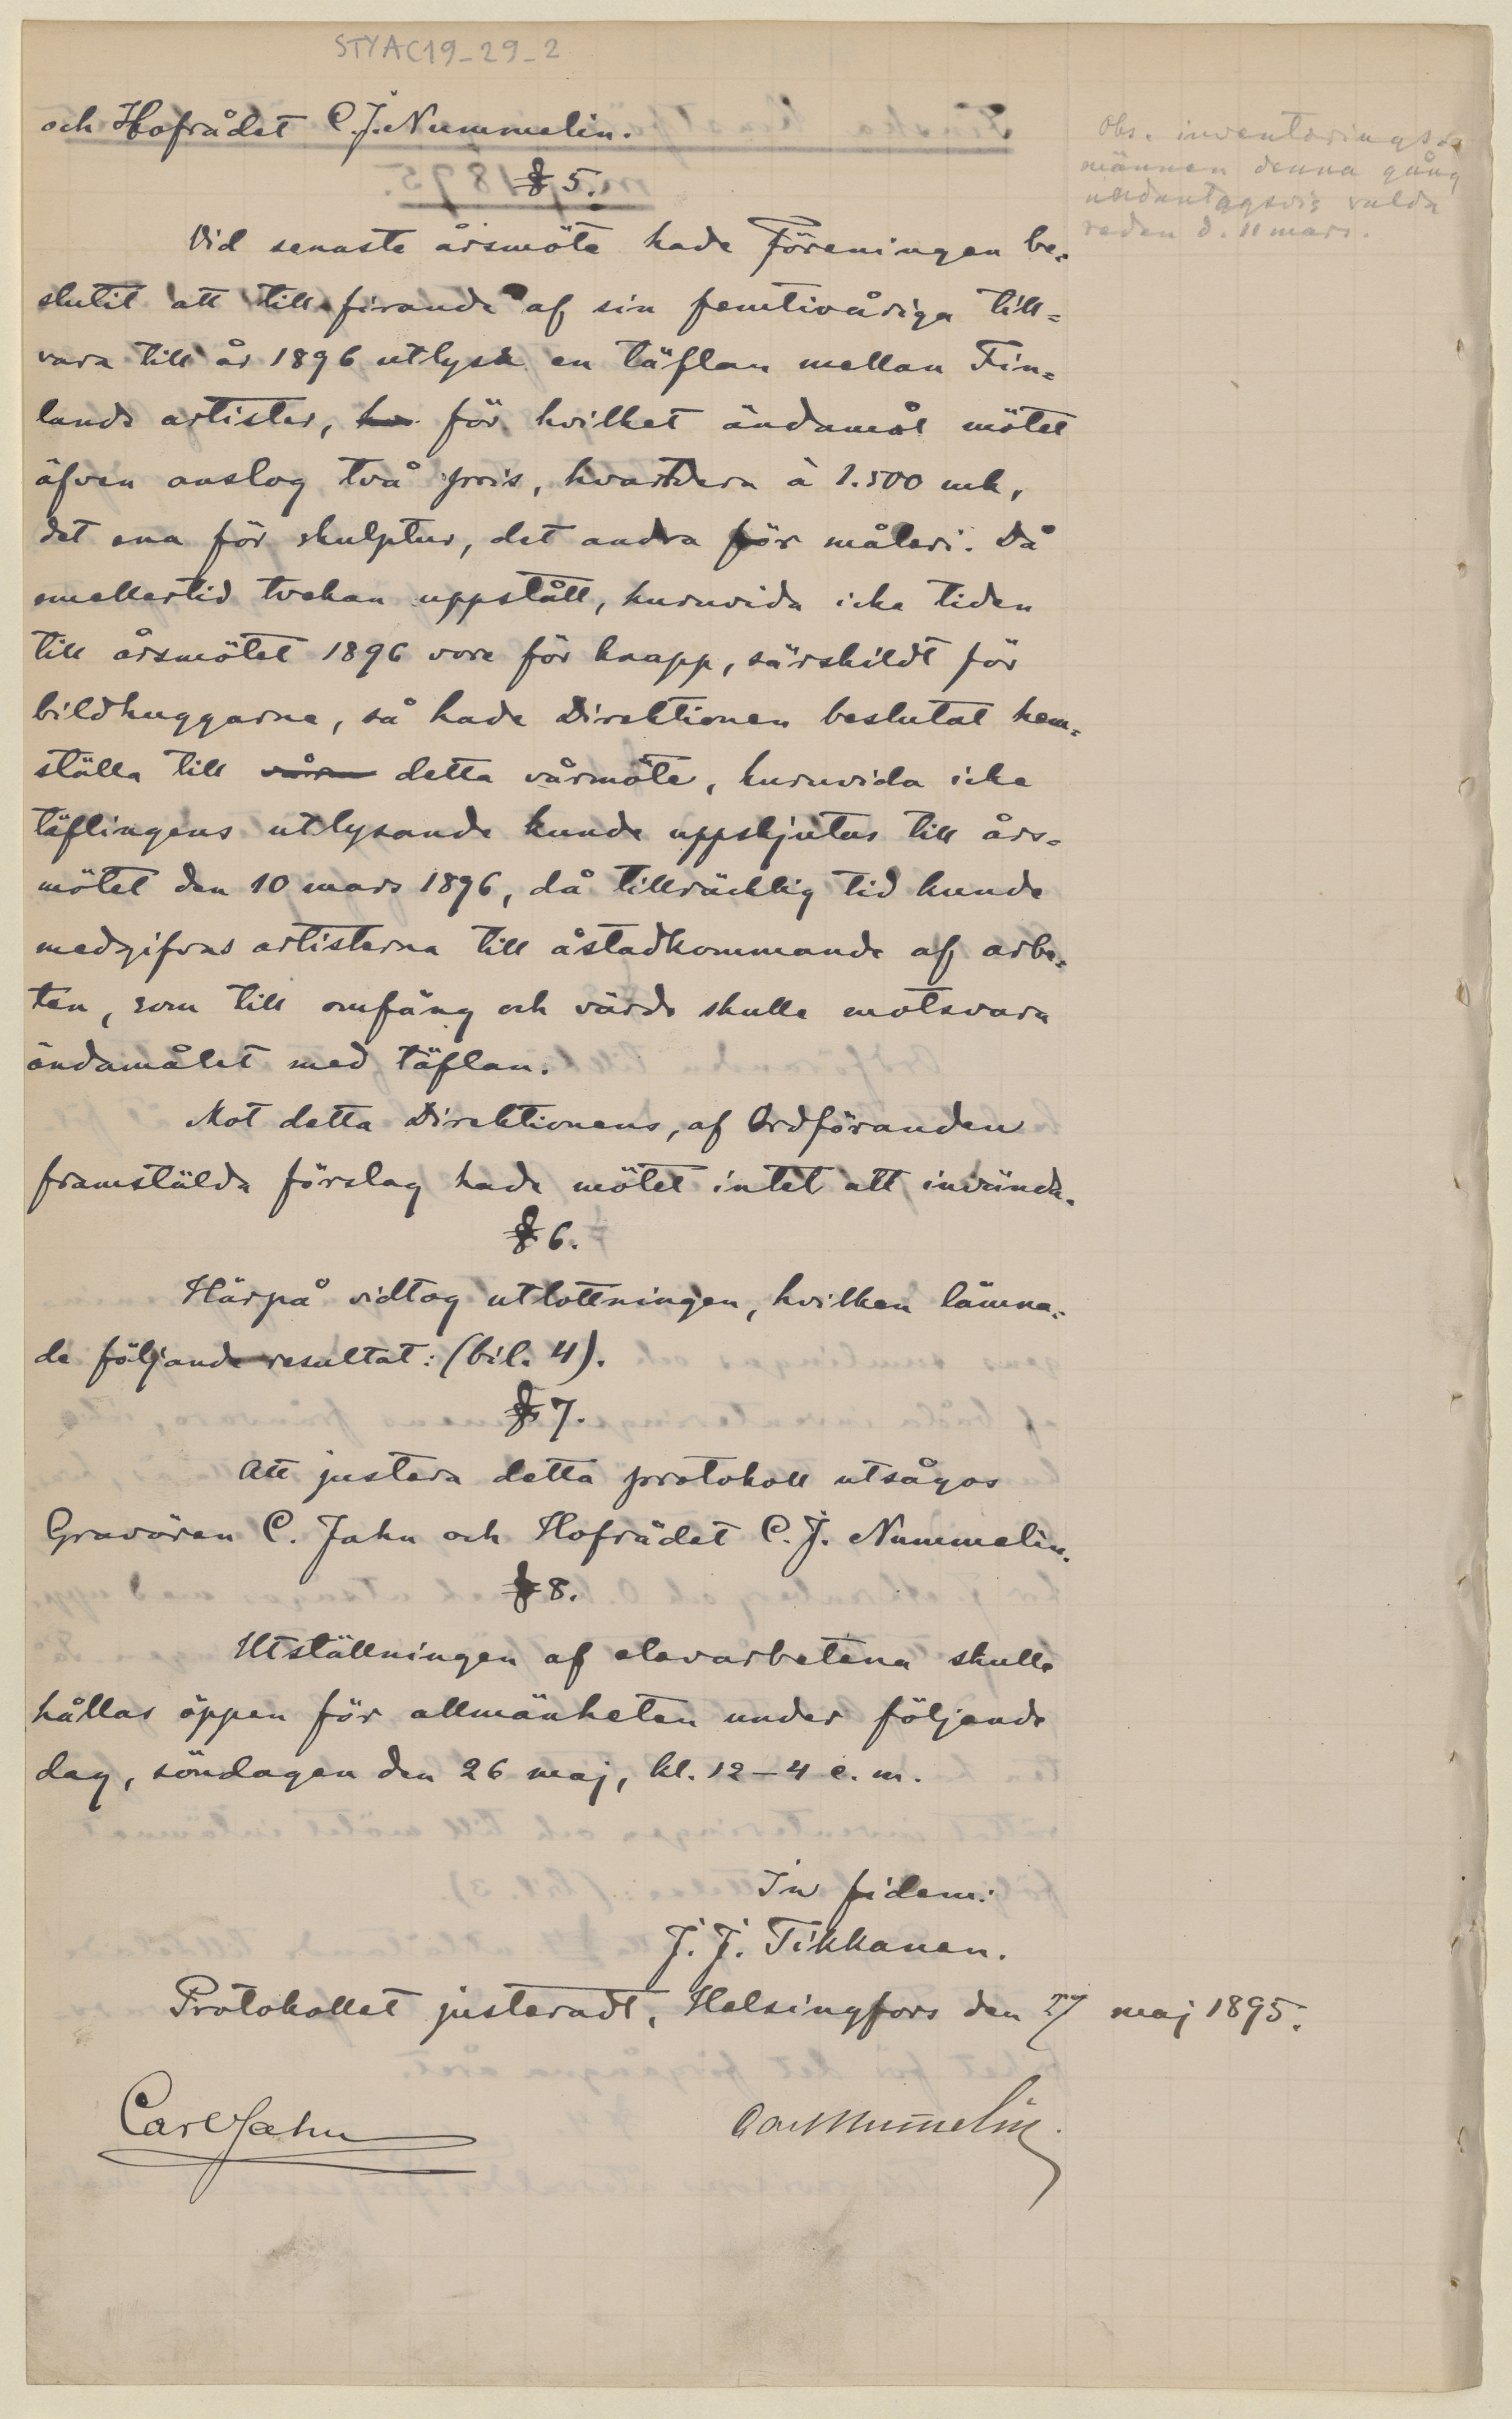 STYAC19_29_2
och Hofrådet C. J. Nummelin.
§ 5.
Vid senaste årsmöte hade Föreningen be=
slutit att till firande af sin femtioåriga till=
varo till år 1896 utlysa en täflan mellan Fin=
lands artister, för hvilket ändamål mötet
äfven anslog två pris, hvartdera à 1.500 mk,
det ena för skulptur, det andra för måleri. Då
emellertid tvekan uppstått, huruvida icke tiden
till årsmötet 1896 vore för knapp, särskildt för
bildhuggarne, så hade Direktionen beslutat hem=
ställa till våra detta vårmöte, huruvida icke
täflingens utlysande kunde uppskjutas till års=
mötet den 10 mars 1896, då tillräcklig tid kunde
medgifvas artisterna till åstadkommande af arbe=
ten, som till omfång och värde skulle motsvara
ändamålet med täflan.
Mot detta Direktionens, af Ordföranden
framstälda förslag hade mötet intet att invända.
§ 6.
Härpå vidtog utlottningen, hvilken lämna=
de följande resultat: (bil. 4).
§ 7.
Att justera detta protokoll utsågos
Gravören C. Jahn och Hofrådet C. J. Nummelin.
§ 8.
Utställningen af elevarbetena skulle
hållas öppen för allmänheten under följande
dag, söndagen den 26 maj, kl. 12–4 e. m.
In fidem:
J. J. Tikkanen.
Protokollet justeradt, Helsingfors den 27 maj 1895.
Carl Jahn
Carl Nummelin.
Obs. inventerings=
männen denna gång
undantagsvis valda
redan d. 11 mars.